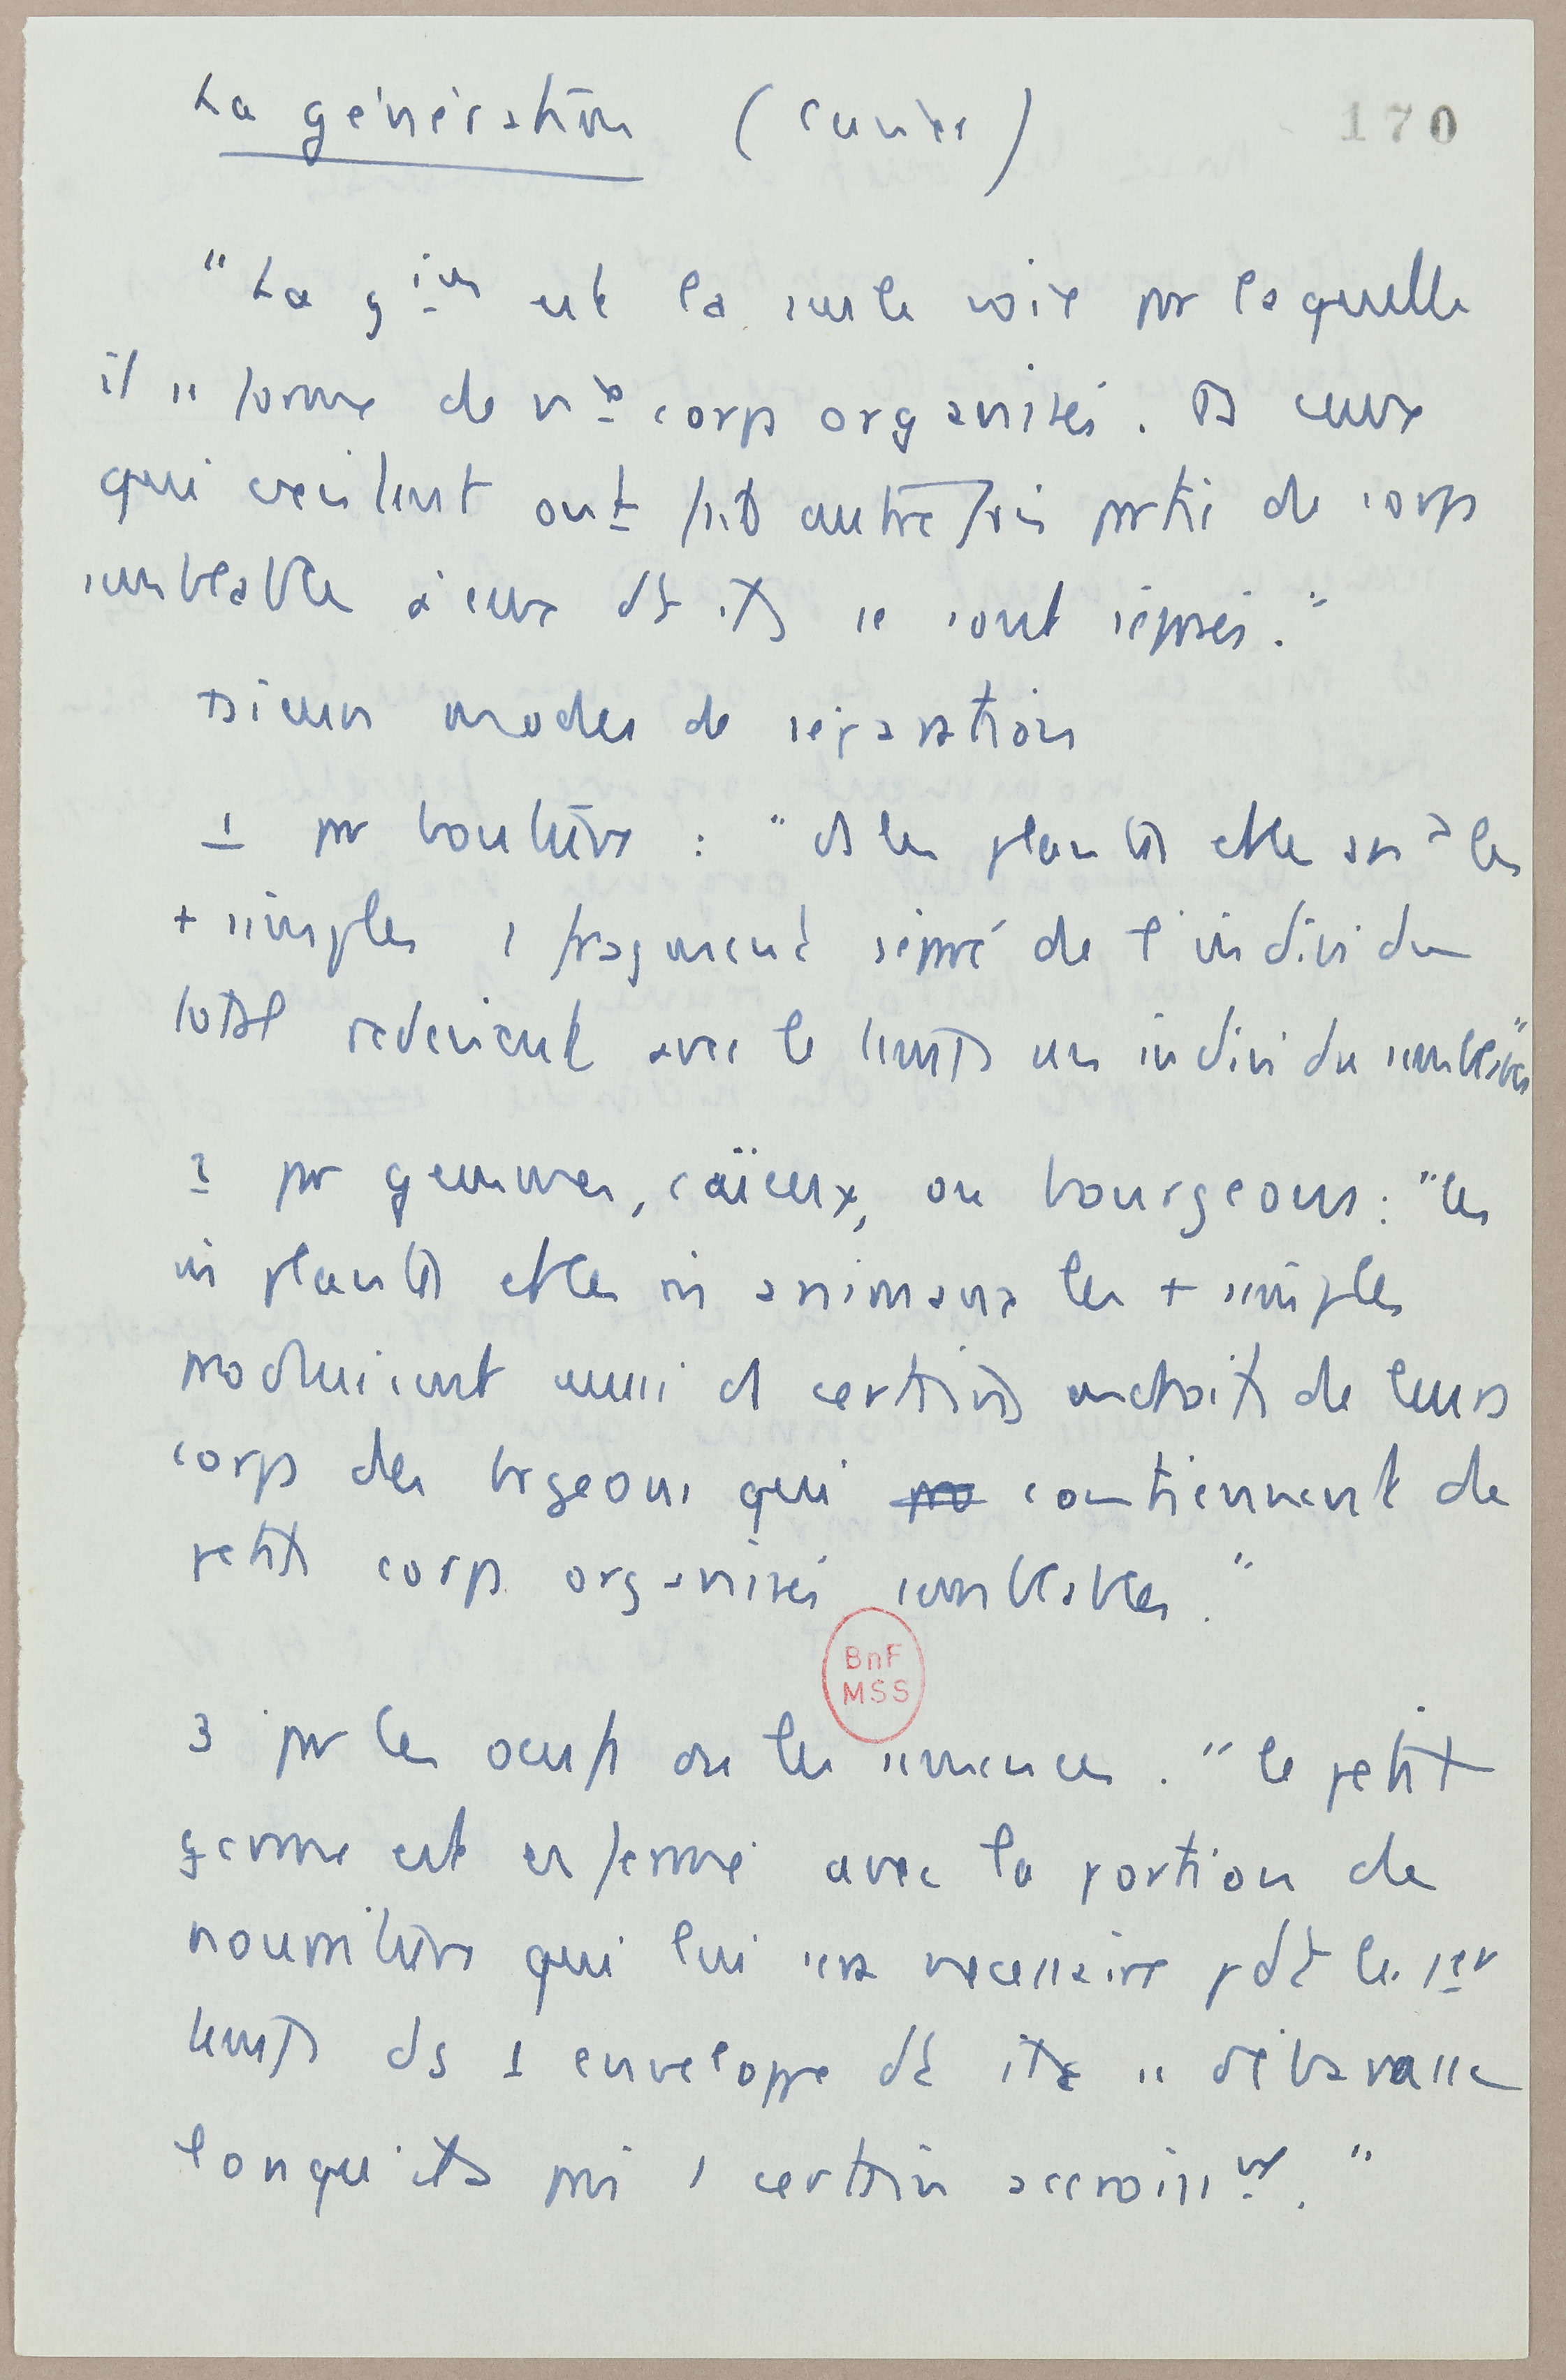 La génération (Cuvier)
170
"La g^ion est la seule voie par laquelle
il se forme de nx corps organisés. Ts ceux
qui existent ont fait autrefois partie de corps
semblables à ceux dt ils se sont séparés."
modes de séparation
1 par bouture : " ds les plantes et les anx les
+ simples 1 fragment séparé de l'individu
total redevient avec le temps un individu semblable"
2 par gemmes, caïeux, ou bourgeons : "les
plantes et les animaux les + simples
produisent aussi ds certains endroits de leurs
corps des bgeons qui contiennent de
petits corps organisés semblables."
BnF
MSS
3 par les oeufs ou les semences. "le petit
germe est enfermé avec la portion de
nourriture qui lui sera necessaire pdt les 1er
temps ds 1 enveloppe dt il se débarrasse
lorsqu'il a pris 1 certain accroisst."